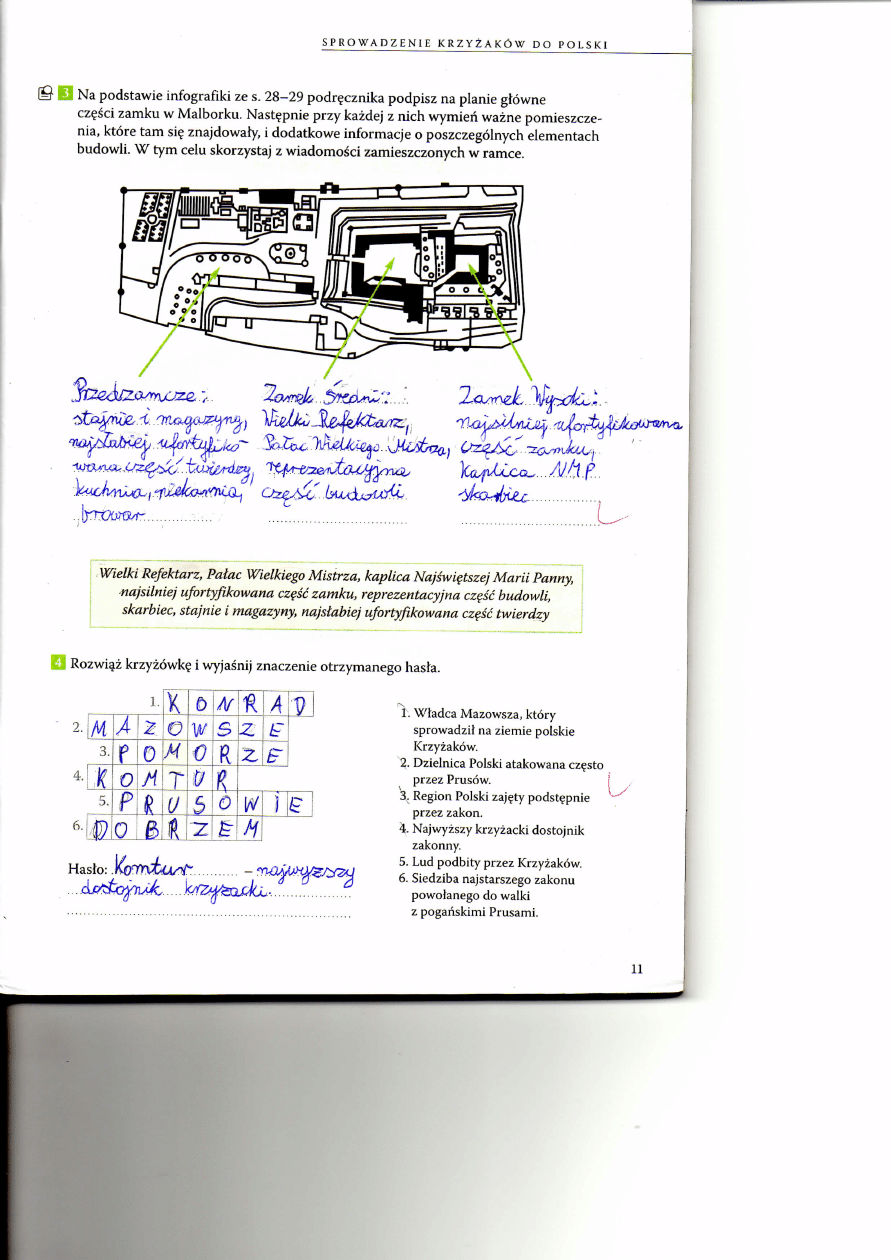 SPROWADZENIE KRZYŻAKÓW DO POLSKI
3 Na podstawie infografiki ze s. 28–29 podręcznika podpisz na planie główne
części zamku w Malborku. Następnie przy każdej z nich wymień ważne pomieszcze-
nia, które tam się znajdowały, i dodatkowe informacje o poszczególnych elementach
budowli. W tym celu skorzystaj z wiadomości zamieszczonych w ramce.
Przedzamcze:
stajnie i magazyny,
najsłabiej ufortyfiko-
wana część twierdzy,
kuchnia, piekarnia,
browar
Zamek Średni:
Wielki Refektarz,
Pałac Wielkiego Mistrza,
reprezentacyjna
część budowli
Zamek Wysoki:
najsilniej ufortyfikowana
część zamku,
kaplica N.M.P.
skarbiec
Wielki Refektarz, Pałac Wielkiego Mistrza, kaplica Najświętszej Marii Panny,
najsilniej ufortyfikowana część zamku, reprezentacyjna część budowli,
skarbiec, stajnie i magazyny, najsłabiej ufortyfikowana część twierdzy
4 Rozwiąż krzyżówkę i wyjaśnij znaczenie otrzymanego hasła.
1. KONRAD
2. MAZOWSZE
3. POMORZE
4. KOMTUR
5. PRUSOWIE
6. DOBRZEM
Hasło: Komtur – najwyższy
dostojnik krzyżacki.
1. Władca Mazowsza, który
sprowadził na ziemie polskie
Krzyżaków.
2. Dzielnica Polski atakowana często
przez Prusów.
3. Region Polski zajęty podstępnie
przez zakon.
4. Najwyższy krzyżacki dostojnik
zakonny.
5. Lud podbity przez Krzyżaków.
6. Siedziba najstarszego zakonu
powołanego do walki
z pogańskimi Prusami.
11